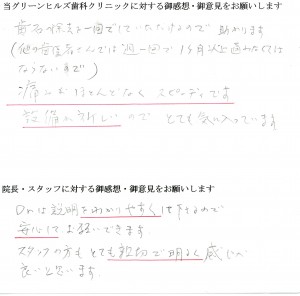 当グリーンヒルズ歯科クリニックに対する御感想・御意見をお願いします
歯石の除去を一回でしていただけるので 助かります
(他の歯医者さんでは週一回で1ヶ月以上通わなくては
ならないまで)
痛みがほとんどなく スピーディです
設備が新しいので とても気に入っています
院長・スタッフに対する御感想・御意見をお願いします
Drは説明をわかりやすくして下さるので
安心してお願いできます
スタッフの方もとても親切で明るく感じが
良いと思います